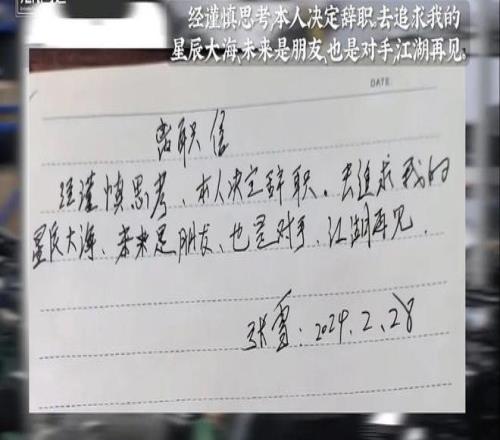 经谨慎思考本人决定辞职。去追求我的
星辰大海、未来是朋友、也是对手,江湖再见。
DATE
离职信
经谨慎思考、本人决定辞职。去追求我的
星辰大海、未来是朋友、也是对手、江湖再见.
张雪.2024.2.28